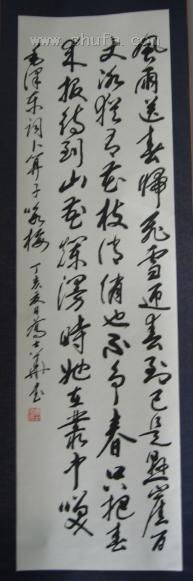 風雨送春歸飛雪迎春到已是懸崖百
丈冰猶有花枝俏俏也不爭春只把春
來報待到山花爛漫時她在叢中笑
毛澤東詞卜算子咏梅 丁亥